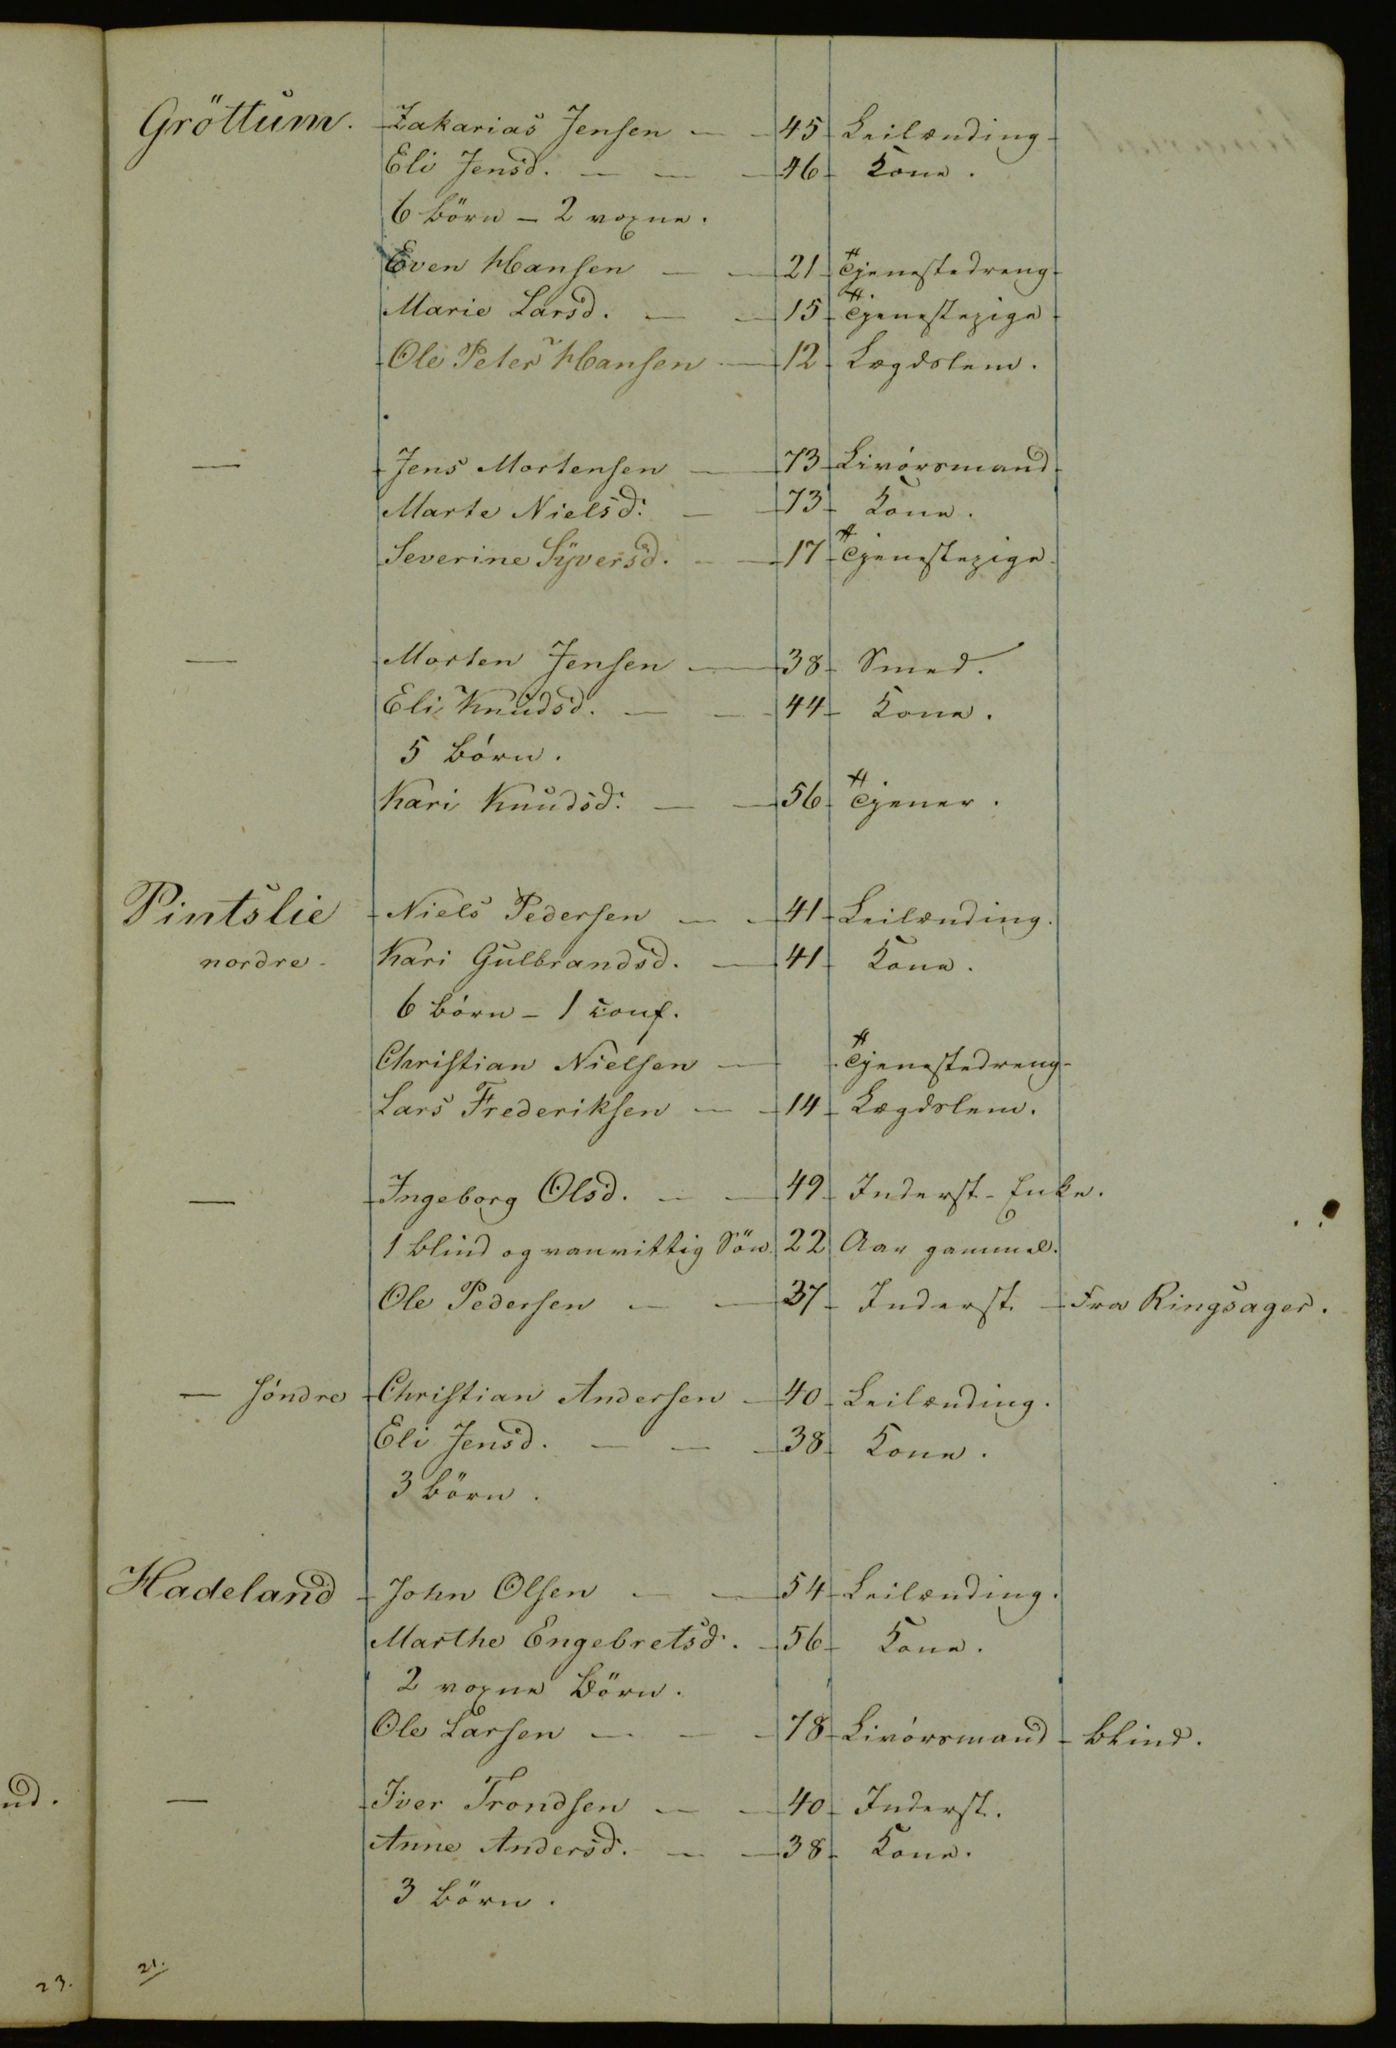 Gröttum. Zakarias Jensen — — 45 Leilænding
Eli Jensd. — — — 46 Kone.
6 Börn — 2 voxne.
Even Hansen — — 21 Tjenestedreng
Marie Larsd. — — 15 Tjenestepige
Ole Peter Hansen — 12 Lægdslem.
— Jens Mortensen — — 73 Livórsmand
Marte Nielsd. — — 73 Kone.
Severine Syversd. — — 17 Tjenestepige
— Morten Jensen — 38 Smed.
Eli Knudsd. — — 44 Kone.
5 Börn.
Kari Knudsd. — — 56 Tjener.
Pintslie Niels Pedersen — — 41 Leilænding.
nordre Kari Gulbrandsd. — 41 Kone.
6 Börn — 1 conf.
Christian Nielsen — Tjenestedreng
Lars Frederiksen — — 14 Lægdslem.
— Ingeborg Olsd. — — 49 Inderst-Enke.
1 blind og vanvittig Sön 22 Aar gammel.
Ole Pedersen — — 37 Inderst — Fra Ringsager.
— söndre Christian Andersen — 40 Leilænding.
Eli Jensd. — — — 38 Kone.
3 Börn.
Hadeland John Olsen — — 54 Leilænding.
Marthe Engebretsd. — 56 Kone.
2 voxne Börn.
Ole Larsen — — — 78 Livórsmand — blind.
nd. — Iver Trondsen — — 40 Inderst.
Anne Andersd. — — 38 Kone.
3 Börn.
23. 21.